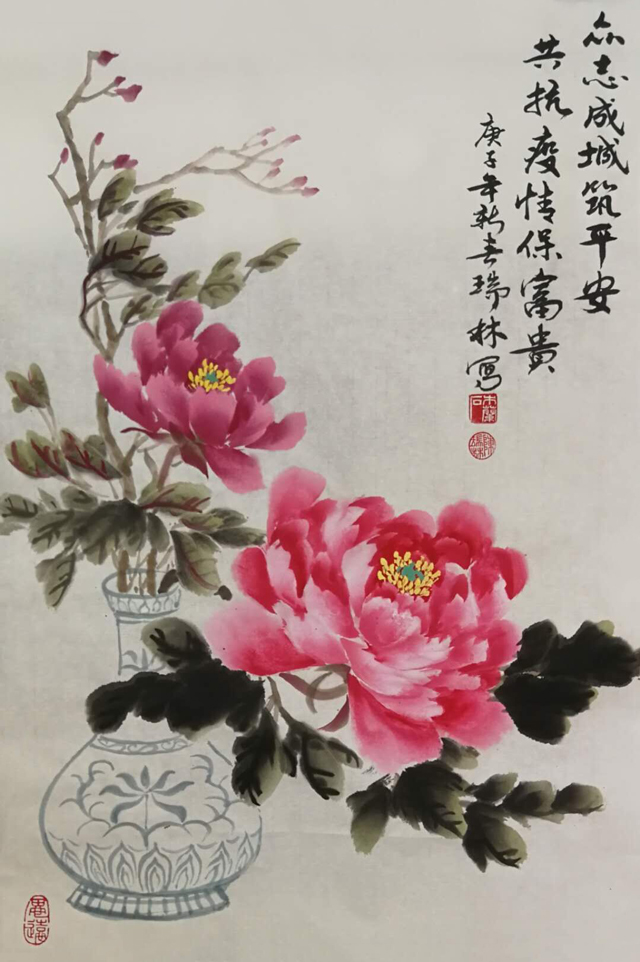 众志成城筑平安
共抗疫情保富貴
庚子年新春瑞林寫